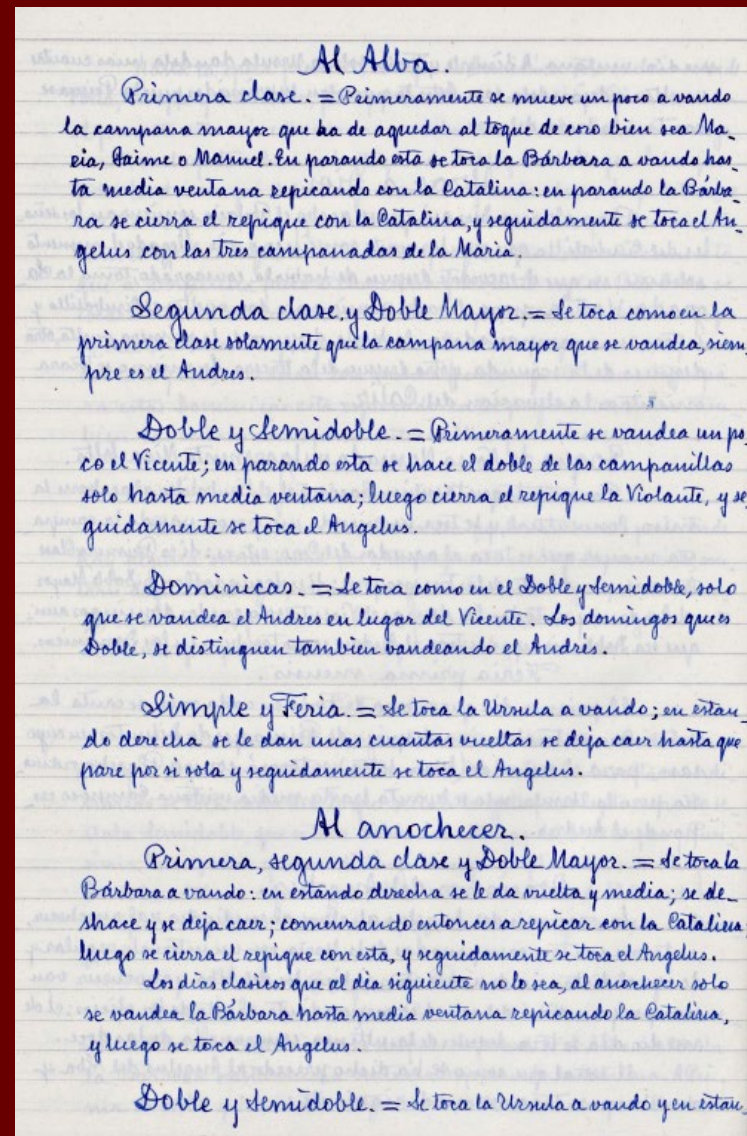 Al Alba.
Primera clase. = Primeramente se mueve un poco a vando
la campana mayor que ha de aquedar al toque de coro bien sea Ma_
ria, Jaime o Manuel. En parando esta se toca la Bárberra a vando has_
ta media ventana repicando con la Catalina: en parando la Bárba_
ra se cierra el repique con la Catalina, y seguidamente se toca el An_
gelus con las tres campanadas de la Maria.
Segunda clase, y Doble Mayor. = Se toca como en la
primera clase solamente que la campana mayor que se vandea, siem_
pre es el Andres.
Doble y Semidoble. = Primeramente se vandea un po_
co el Vicente; en parando esta se hace el doble de las campanillas
solo hasta media ventana; luego cierra el repique la Violante, y se_
guidamente se toca el Angelus.
Dominicas. = Se toca como en el Doble y Semidoble, solo
que se vandea el Andres en lugar del Vicente. Los domingos que es
Doble, se distinguen tambien vandeando el Andrés.
Simple y Feria. = Se toca la Ursula a vando; en estan_
do derecha se le dan unas cuantas vueltas se deja caer hasta que
pare por si sola y seguidamente se toca el Angelus.
Al anochecer.
Primera, segunda clase y Doble Mayor. = Se toca la
Bárbara a vando: en estando derecha se le da vuelta y media; se de_
shace y se deja caer; comenzando entonces a repicar con la Catalina;
luego se cierra el repique con esta, y seguidamente se toca el Angelus.
Los dias clasicos que al día siguiente no lo sea, al anochecer solo
se vandea la Bárbara hasta media ventana repicando la Catalina,
y luego se toca el Angelus.
Doble y Semidoble. = Se toca la Ursula a vando y en estan_